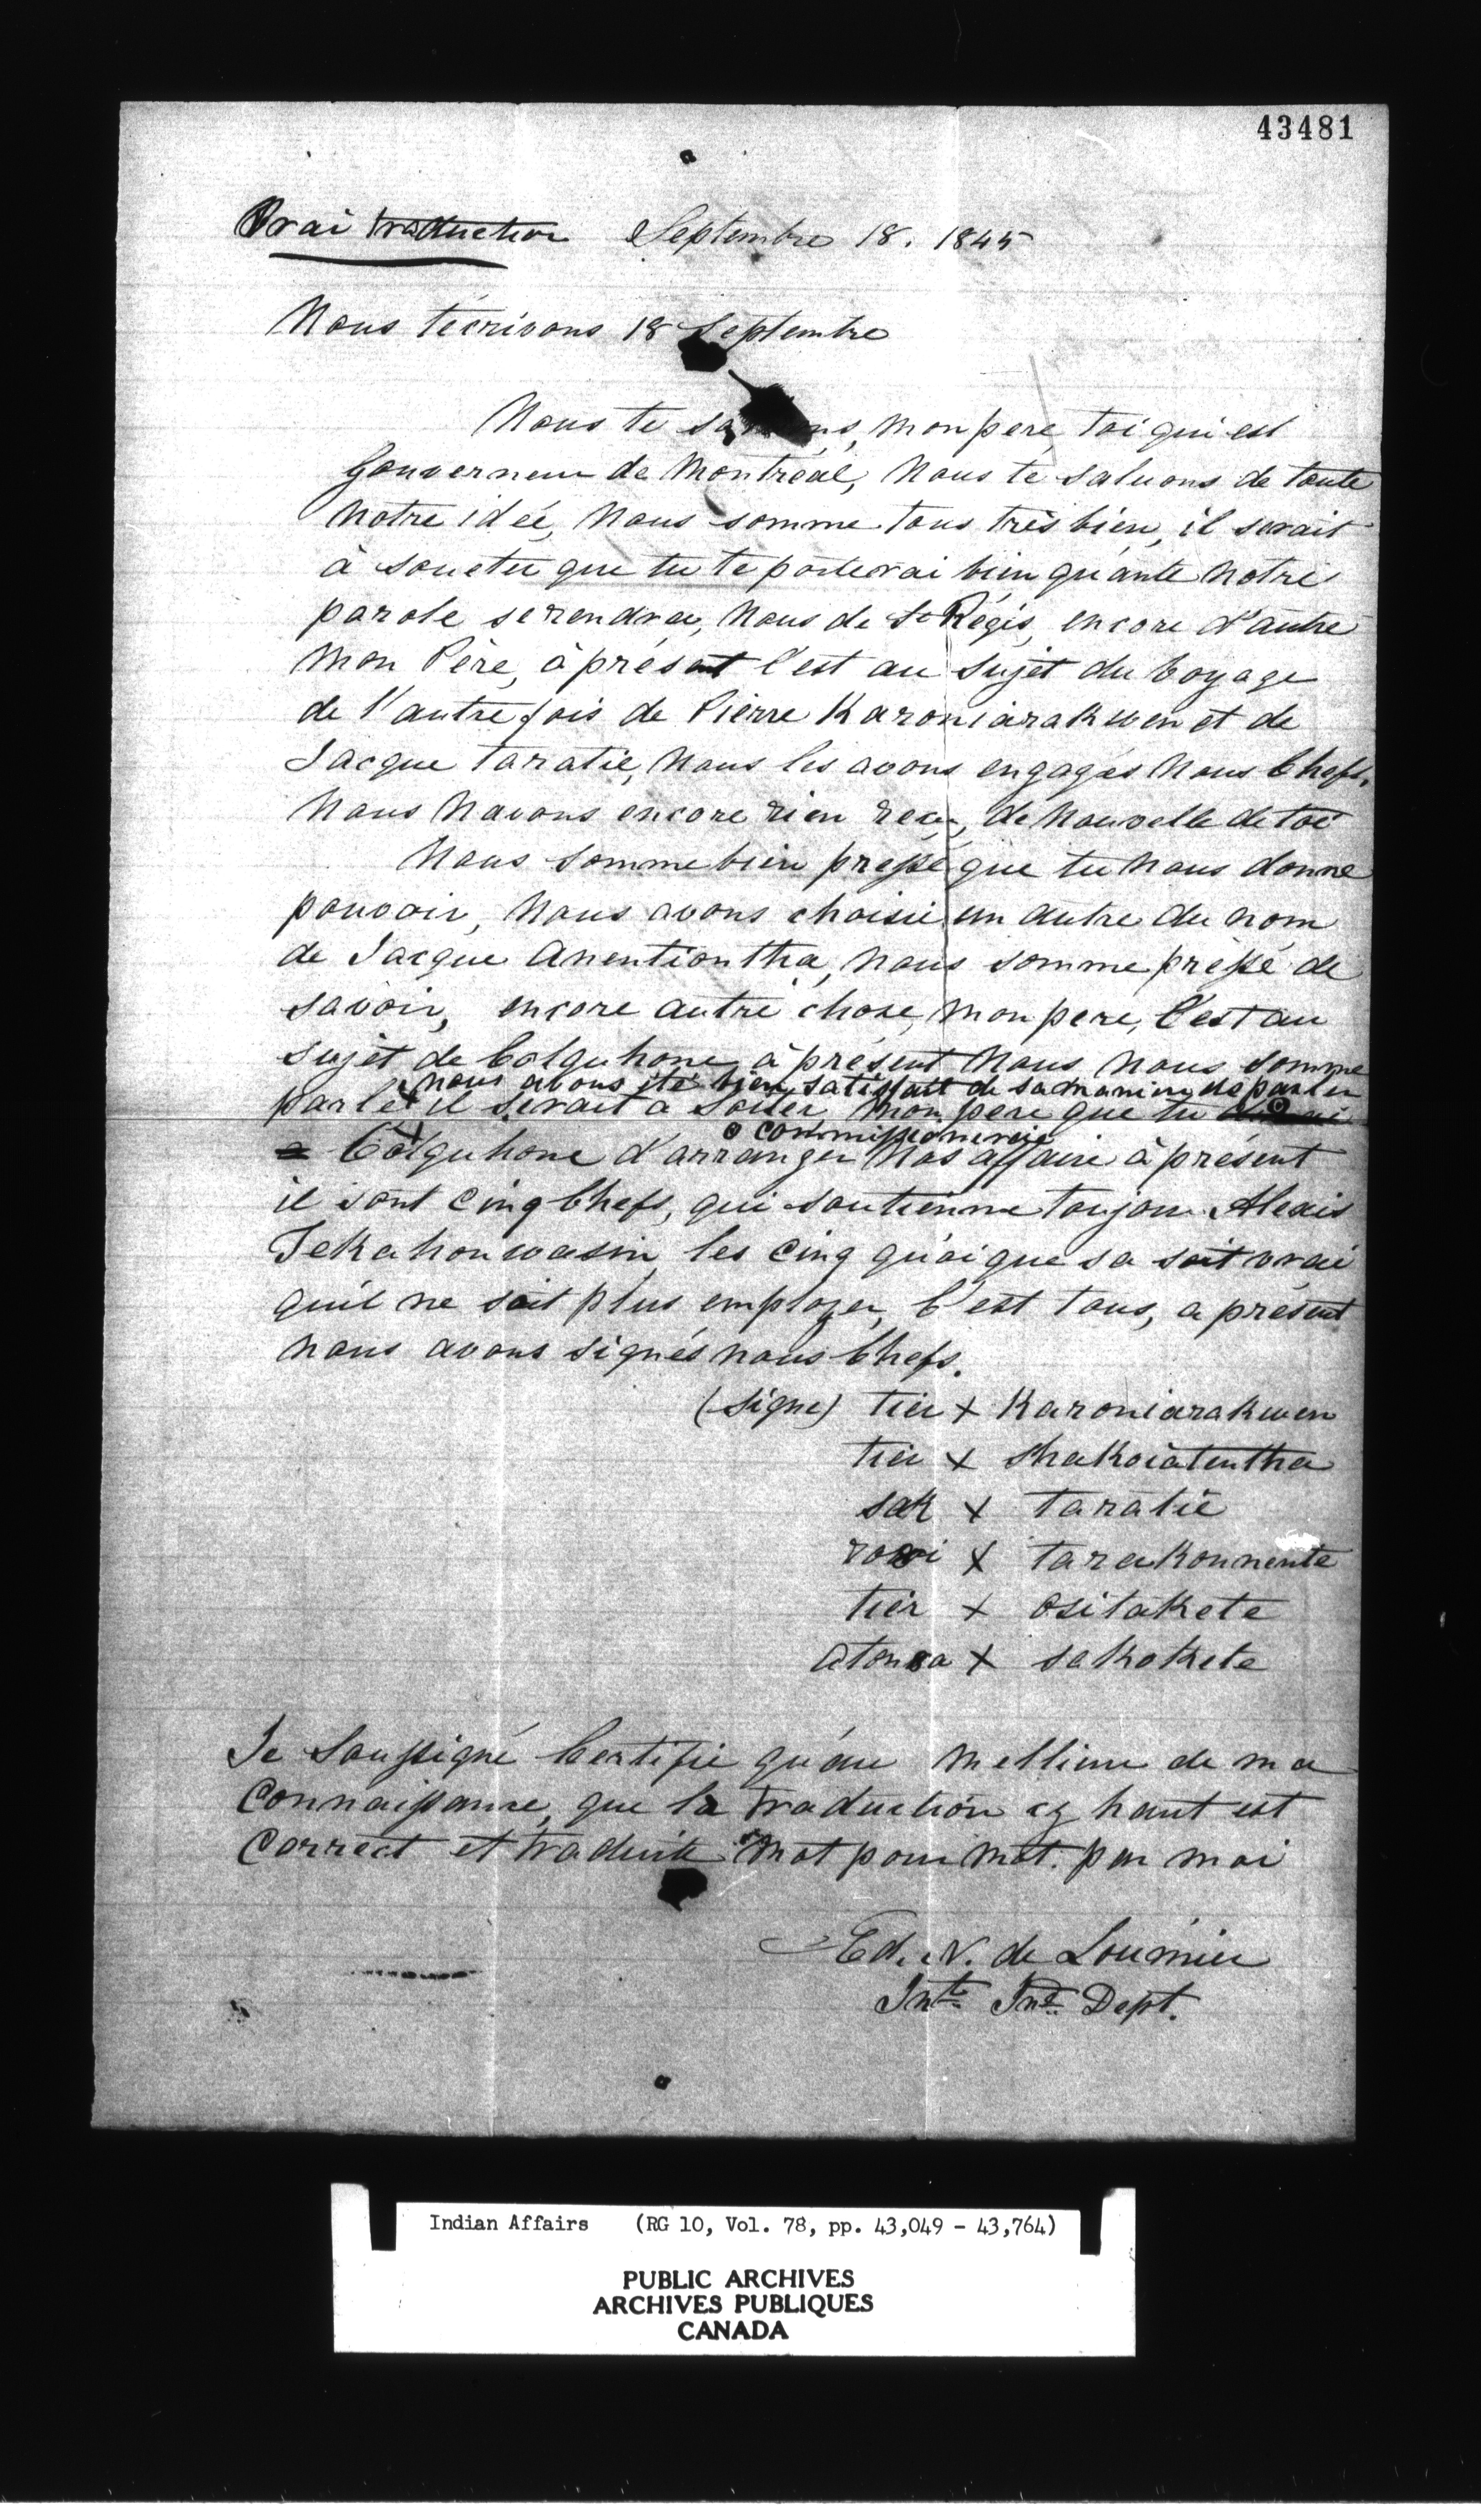 43481
Vrai traduction Septembre 18. 1845
Nous t'ecrivons 18 Septembre
Nous te saluons, mon pere, toi qui est
Gouverneur de Montreal, Nous te saluons de toute
notre idée, Nous somme tous très bien, il serait
à souetter que tu te porterai bien qu'ante notre
parole se rendra, Nous de St Régis, encore d'autre
Mon Père, à présent C'est au sujet du Voyage
de l'autre fois de Pierre Karoniarakwen et de
Jacque taratie, Nous les avons engagés Nous Chefs,
Nous Navons encore rien recu, de Nouvelle de toi
Nous somme bien pressé que tu Nous donne
pouvoir, Nous avons choisie un autre du nom
de Jacque Anentiontha, nous somme préssé de
savoir, encore autre chose, mon pere, C'est au
sujèt de Colquhone à présent Nous Nous somme
nous avons été bien satisfait de sa maniere de parler
parlé X il serait a soiter mon pere que tu
commissionerais
a Colquhone d'arranger Nos affaire à présent
il sont Cinq Chefs, qui soutienne toujour Alexis
Tekahonwasin, les Cinq qu'oique sa soit vrai
quil ne soit plus employer, C'est tous, a présent
nous avons signés nous Chefs.
(signe) tier X Karoniarakwen
tier X Shakoiatentha
sak X taratie
rowi X tarakonnente
tier X Ositakete
Atonsa X sakokete
Je Soussigné Certifie qu'au Mellieur de ma
Connaissance, que la traduction cy haut est
Correct et traduite Mot pour Mot. par moi
Ed. N. de Lorimier
Inte Ind Dept.
Indian Affairs (RG 10, Vol. 78, pp. 43,049 - 43,764)
PUBLIC ARCHIVES
ARCHIVES PUBLIQUES
CANADA